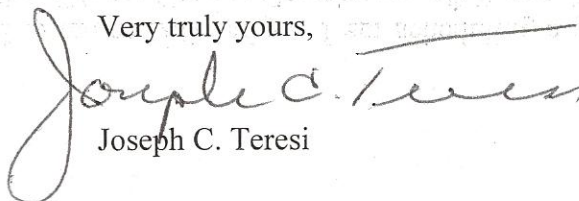 Very truly yours,
Joseph C. Teresi
Joseph C. Teresi